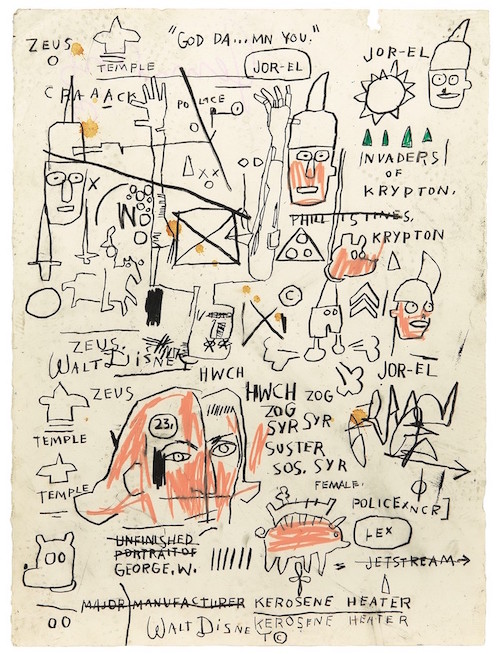 ZEUS
"GOD DA...MN YOU."
TEMPLE
JOR-EL
JOR-EL
CRAAACK
POLICE
XX
OO
X
INVADERS
OF
KRYPTON.
PHILISTINES.
KRYPTON
©
ZEUS.
WALT DISNEY
HWCH
JOR-EL
ZEUS
HWCH ZOG
ZOG
SYR SYR
SUSTER
SOS. SYR
FEMALE.
TEMPLE
23,
TEMPLE
POLICE X NCR]
LEX
UNFINISHED
PORTRAIT OF
GEORGE, W.
= JETSTREAM→
MAJOR MANUFACTURER KEROSENE HEATER
OO
WALT DISNEY KEROSENE HEATER
©